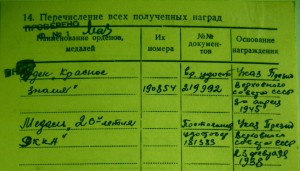 14. Перечисление всех полученных наград
ПРОВЕРЕНО
Наименование орденов, медалей
Их номера
№№ документов
Основание награждения
Орден „Красное
знамя“
190854
вр. удост.
219992
Указ Презид
Верховного
совета СССР
30 апреля
1945
Медаль „20 летие
РККА“
удостовер
181383
Указ Презид
Верховного
совета СССР
23 февраля
1938